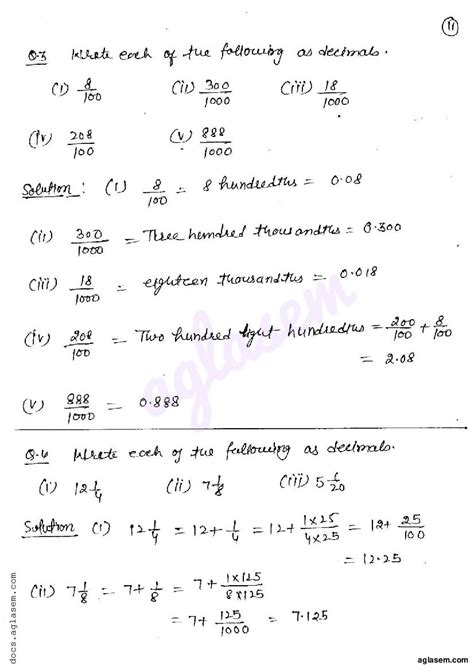 11
Q.3 Write each of the following as decimals.
(i) 8/100 (ii) 300/1000 (iii) 18/1000
(iv) 208/100 (v) 888/1000
Solution : (i) 8/100 = 8 hundredths = 0.08
(ii) 300/1000 = Three hundred thousandths = 0.300
(iii) 18/1000 = eighteen thousandths = 0.018
(iv) 208/100 = Two hundred eight hundredths = 200/100 + 8/100
= 2.08
(v) 888/1000 = 0.888
aglasem
Q.4 Write each of the following as decimals.
(i) 12 1/4 (ii) 7 1/8 (iii) 5 /20
Solution (i) 12 1/4 = 12 + 1/4 = 12 + 1×25/4×25 = 12 + 25/100
= 12.25
(ii) 7 1/8 = 7 + 1/8 = 7 + 1×125/8×125
= 7 + 125/1000 = 7.125
docs.aglasem.com
aglasem.com